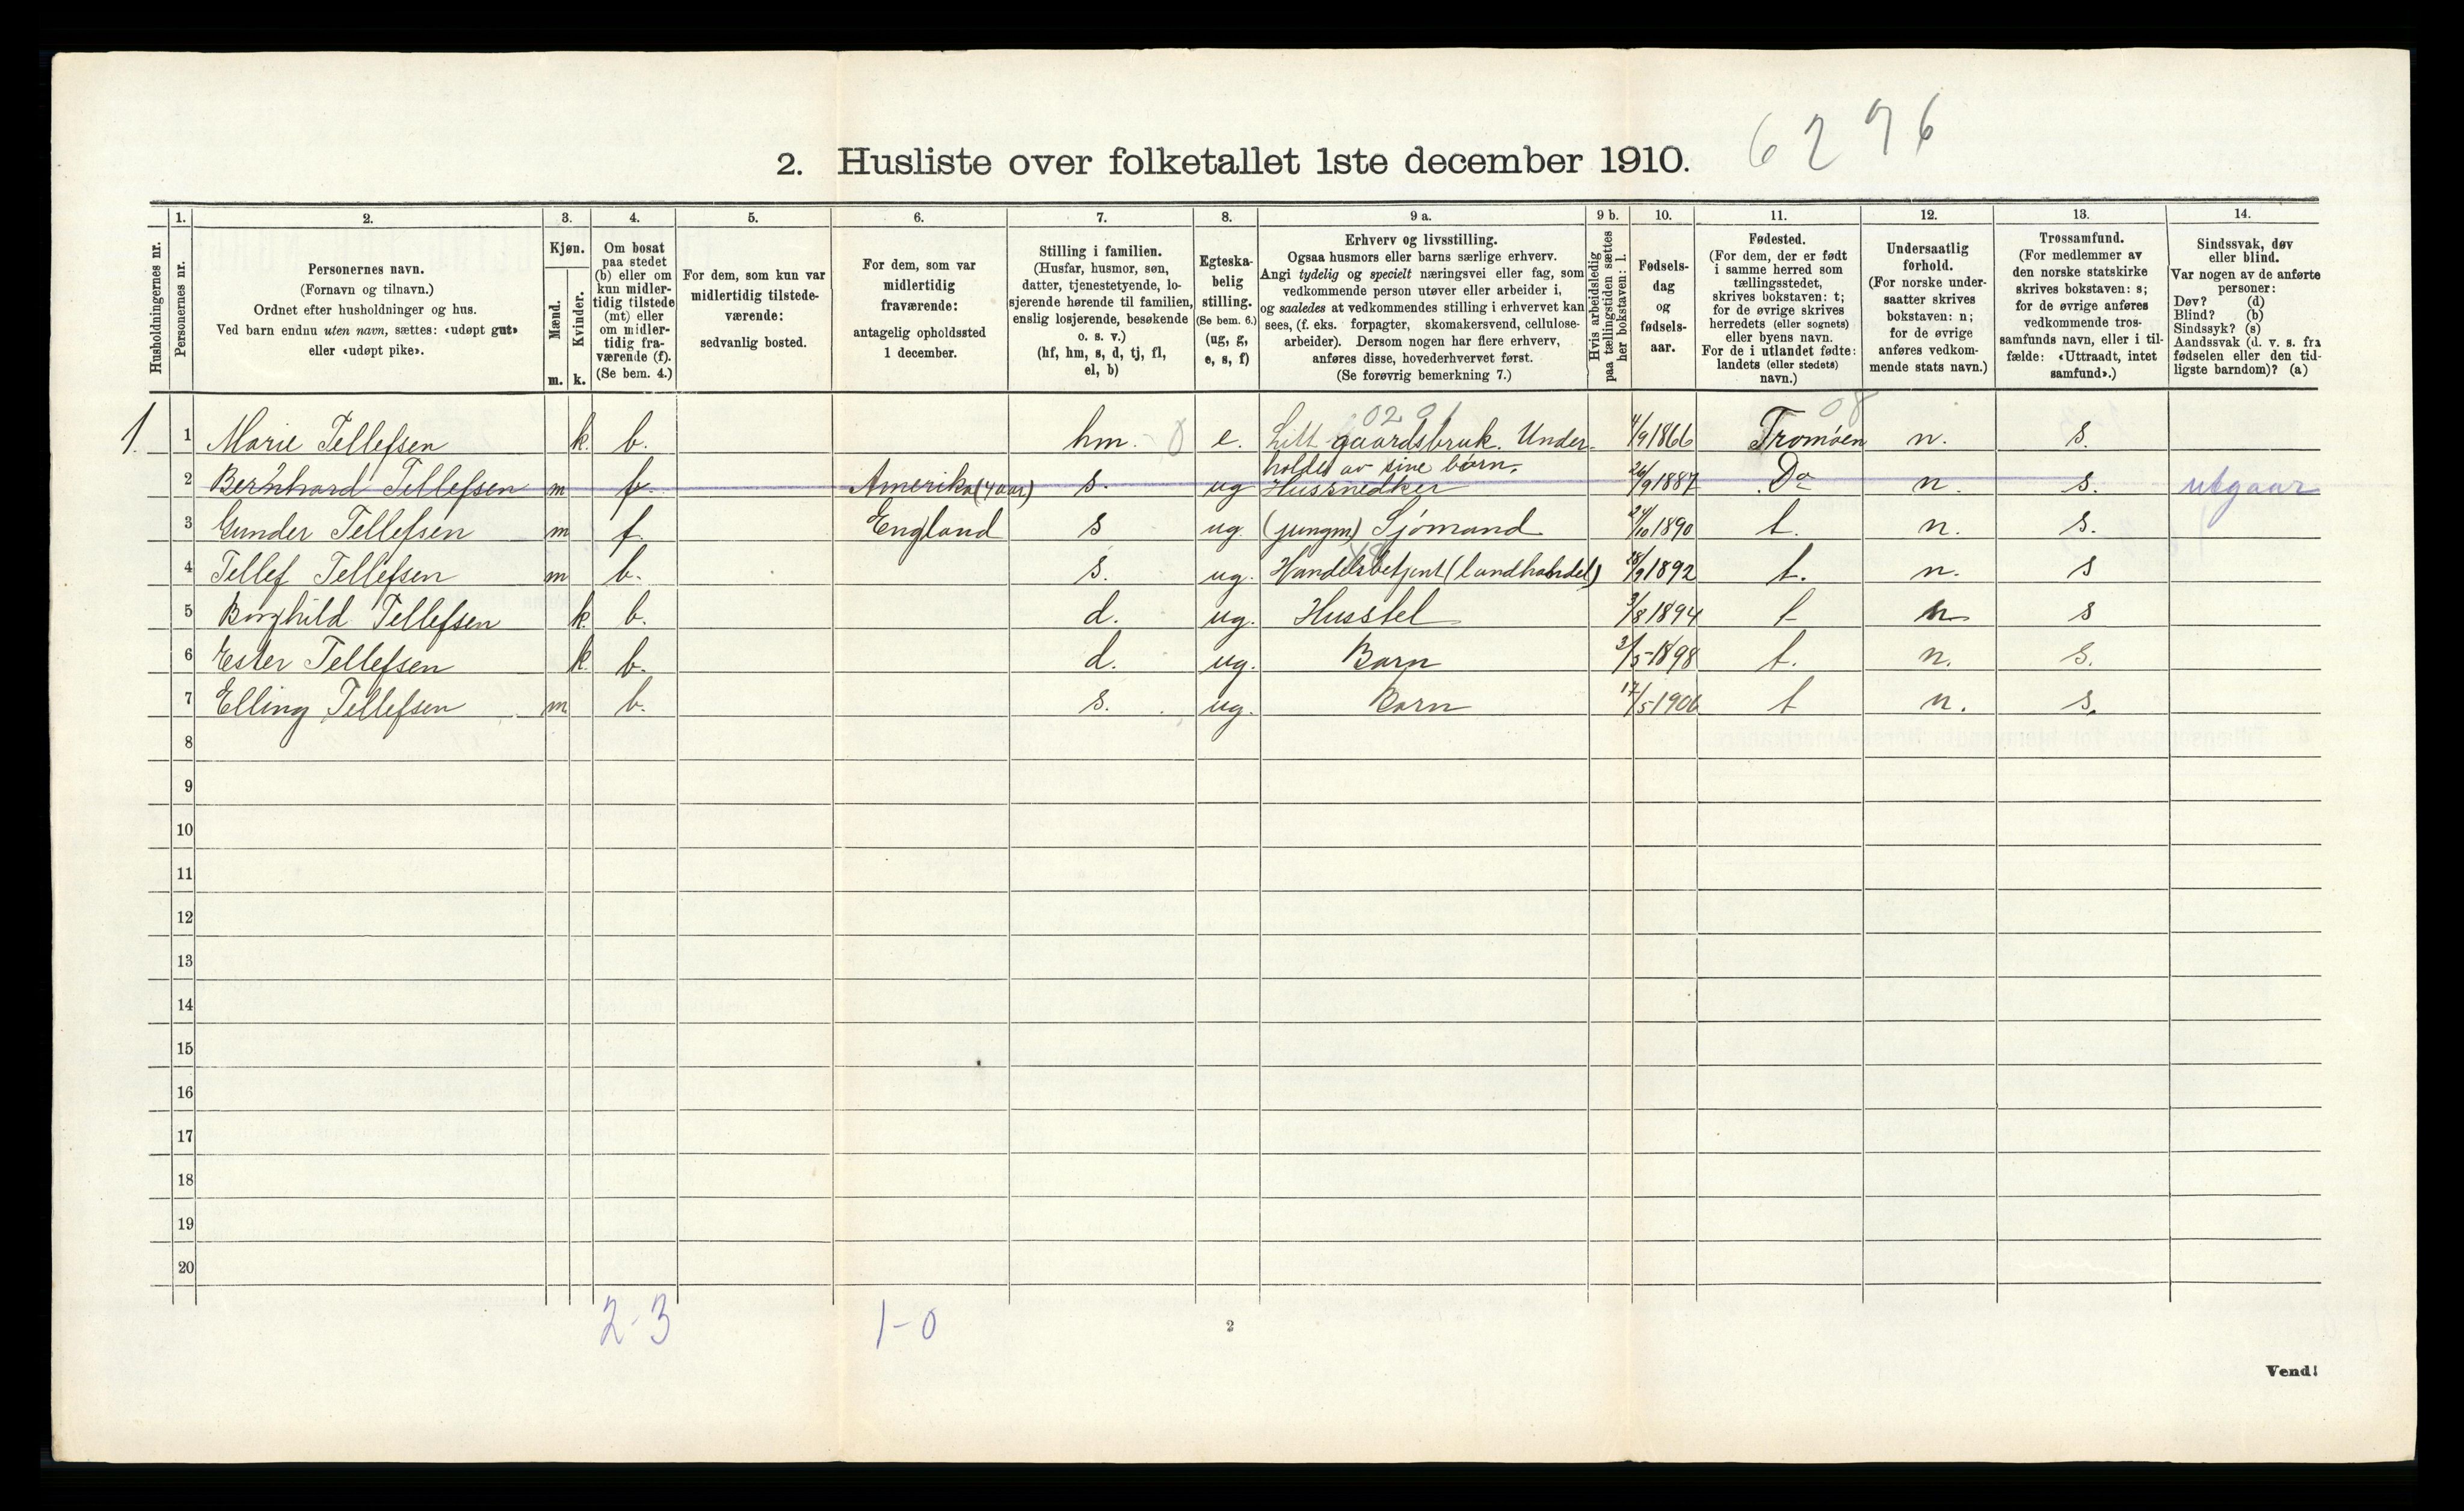 6276
2. Husliste over folketallet 1ste december 1910.
Husholdningernes nr.
1.
Personernes nr.
2.
Personernes navn.
(Fornavn og tilnavn.)
Ordnet efter husholdninger og hus.
Ved barn endnu uten navn, sættes: «udøpt gut»
eller «udøpt pike».
3.
Kjøn.
Mænd.
Kvinder.
m.
k.
4.
Om bosat
paa stedet
(b) eller om
kun midler-
tidig tilstede
(mt) eller
om midler-
tidig fra-
værende (f).
(Se bem. 4.)
5.
For dem, som kun var
midlertidig tilstede-
værende:
sedvanlig bosted.
6.
For dem, som var
midlertidig
fraværende:
antagelig opholdssted
1 december.
7.
Stilling i familien.
(Husfar, husmor, søn,
datter, tjenestetyende, lo-
sjerende hørende til familien,
enslig losjerende, besøkende
o. s. v.)
(hf, hm, s, d, tj, fl,
el, b)
8.
Egteska-
belig
stilling.
(Se bem. 6.)
(ug, g,
e, s, f)
9 a.
Erhverv og livsstilling.
Ogsaa husmors eller barns særlige erhverv.
Angi tydelig og specielt næringsvei eller fag, som
vedkommende person utøver eller arbeider i,
og saaledes at vedkommendes stilling i erhvervet kan
sees, (f. eks. forpagter, skomakersvend, cellulose-
arbeider). Dersom nogen har flere erhverv,
anføres disse, hovederhvervet først.
(Se forøvrig bemerkning 7.)
9 b.
Hvis arbeidsledig
paa tællingstiden sættes
her bokstaven: l.
10.
Fødsels-
dag
og
fødsels-
aar.
11.
Fødested.
(For dem, der er født
i samme herred som
tællingsstedet,
skrives bokstaven: t;
for de øvrige skrives
herredets (eller sognets)
eller byens navn.
For de i utlandet fødte:
landets (eller stedets)
navn.)
12.
Undersaatlig
forhold.
(For norske under-
saatter skrives
bokstaven: n;
for de øvrige
anføres vedkom-
mende stats navn.)
13.
Trossamfund.
(For medlemmer av
den norske statskirke
skrives bokstaven: s;
for de øvrige anføres
vedkommende tros-
samfunds navn, eller i til-
fælde: «Uttraadt, intet
samfund».)
14.
Sindssvak, døv
eller blind.
Var nogen av de anførte
personer:
Døv? (d)
Blind? (b)
Sindssyk? (s)
Aandssvak (d. v. s. fra
fødselen eller den tid-
ligste barndom)? (a)
0291 08
1. 1 Marie Tellefsen k b. hm. 0 e. Litt gaardsbruk. Under- 4/9 1866 Tromøen n. s.
holdes av sine børn.
2 Bernhard Tellefsen m f. Amerika (4 aar) s. ug Hussnedker 26/9 1887 Do n. s. utgaar
3 Gunder Tellefsen m f. England s ug. (jungm) Sjømand 24/10 1890 t. n. s.
4 Tellef Tellefsen m b. s. ug. Handelsbetjent (landhandel) 28/9 1892 t. n. s
5 Borghild Tellefsen k. b. d. ug. Husstel 3/8 1894 t n s
6 Ester Tellefsen k. b. d. ug. Barn 3/5 1898 t. n. s.
7 Elling Tellefsen m b. s. ug. Barn 17/5 1906 t n. s.
8
9
10
11
12
13
14
15
16
17
18
19
20
2-3 1-0
2
Vend!